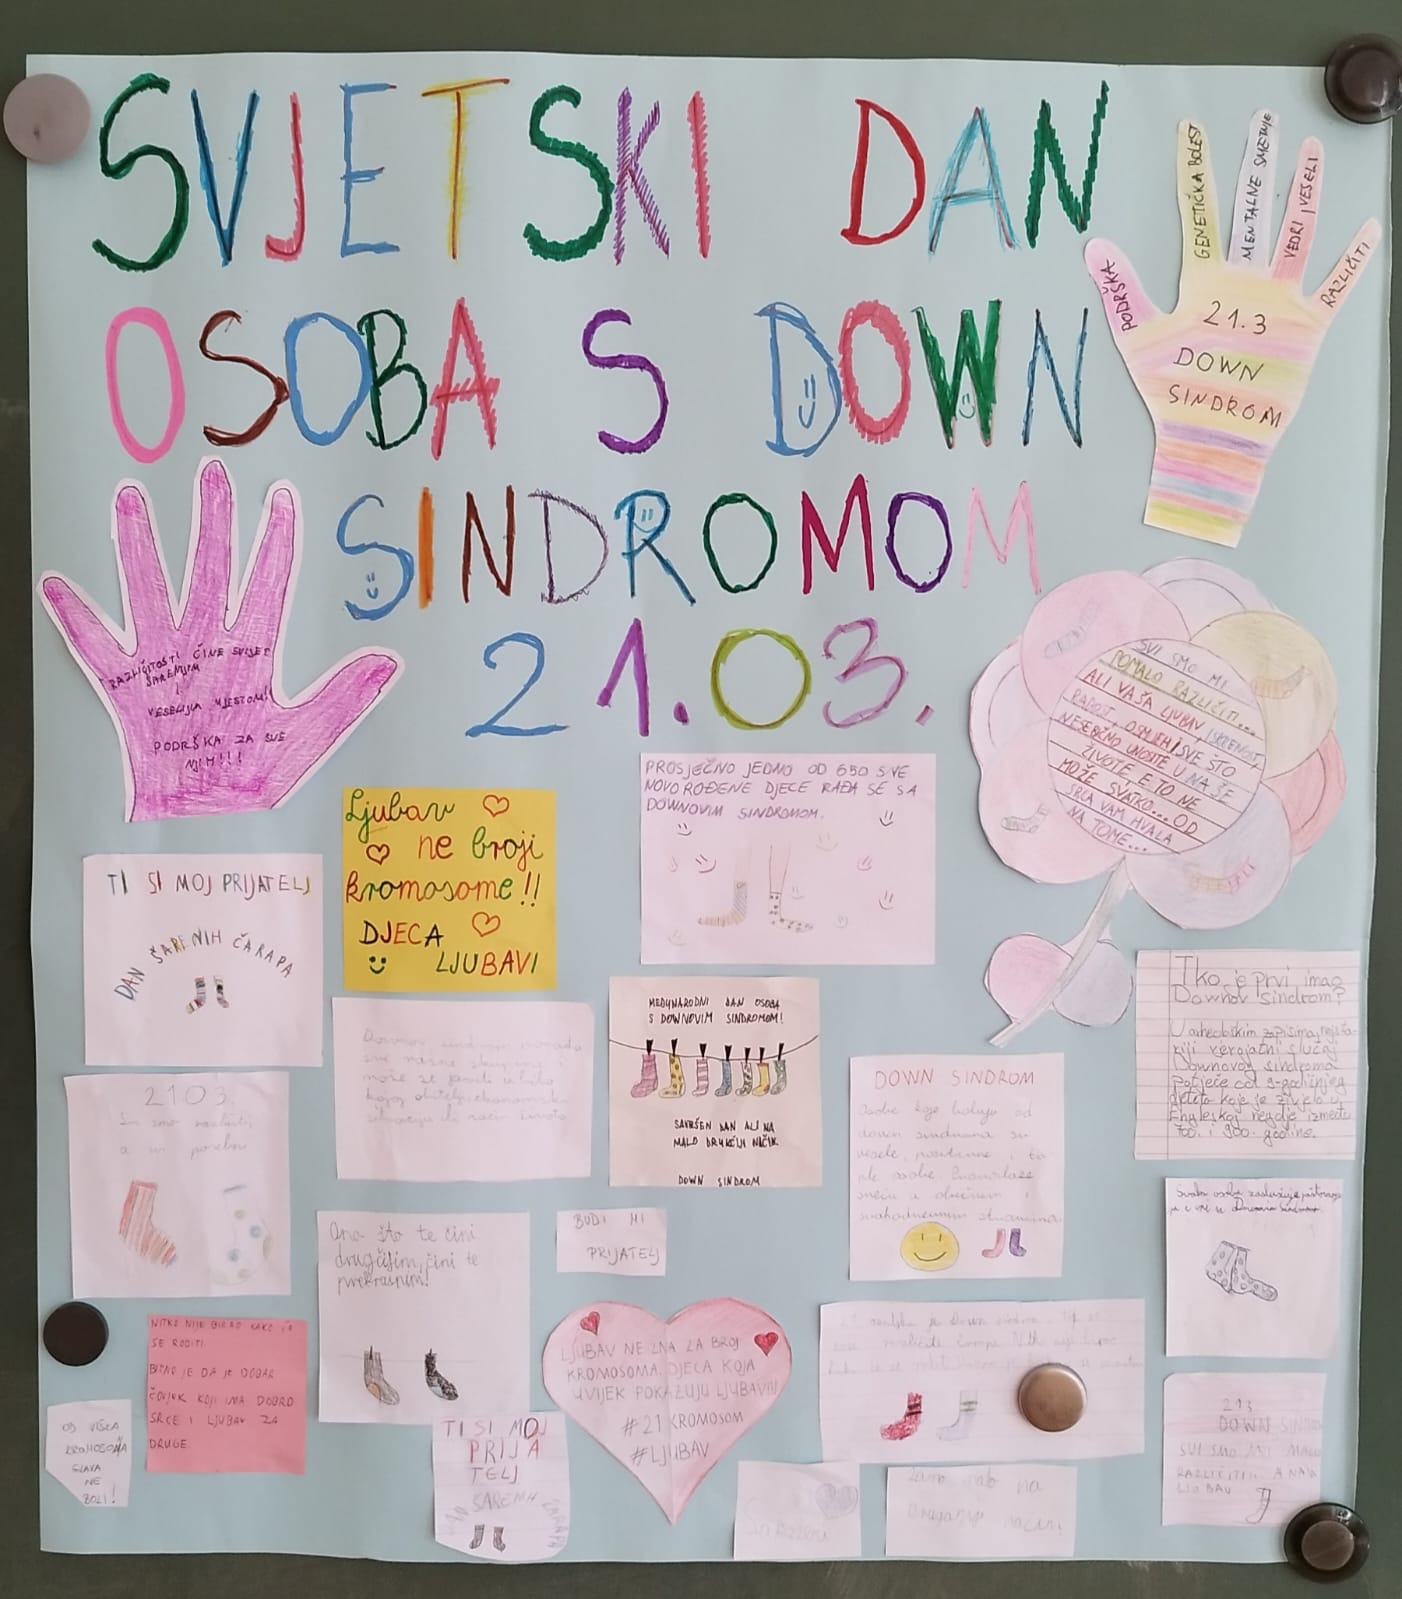 SVJETSKI DAN
OSOBA S DOWN
SINDROMOM
21.03.
PODRŠKA
GENETIČKA BOLEST
MENTALNE SMETNJE
VEDRI I VESELI
RAZLIČITI
21.3
DOWN
SINDROM
RAZLIČITOSTI ČINE SVIJET
ŠARENIJIM
I
VESELIJIM MJESTOM!
PODRŠKA ZA SVE
NJIH!!!
SVI SMO MI
POMALO RAZLIČITI...
ALI VAŠA LJUBAV, ISKRENOST,
RADOST, OSMJEH I SVE ŠTO
NESEBIČNO UNOSITE U NAŠE
ŽIVOTE E TO NE
MOŽE SVATKO... OD
SRCA VAM HVALA
NA TOME...
PROSJEČNO JEDNO OD 650 SVE
NOVOROĐENE DJECE RAĐA SE SA
DOWNOVIM SINDROMOM.
Ljubav
ne broji
kromosome!!
DJECA
LJUBAVI
TI SI MOJ PRIJATELJ
DAN ŠARENIH ČARAPA
MEĐUNARODNI DAN OSOBA
S DOWNOVIM SINDROMOM!
SAVRŠEN DAN ALI NA
MALO DRUKČIJI NAČIN.
DOWN SINDROM
Tko je prvi imao
Downov sindrom?
U arheološkim zapisima najsta-
riji vjerojatni slučaj
Downovog sindroma
potječe od 5-godišnjeg
djeteta koje je živjelo u
Engleskoj negdje između
700. i 900. godine.
DOWN SINDROM
Osobe koje boluju od
down sindroma su
vesele, pozitivne i
osobe. Pronalaze
sreću u običnim i
svakodnevnim stvarima
2103.
Svi smo različiti
a svi posebni
Ono što te čini
drugčijim, čini te
prekrasnim!
BUDI MI
PRIJATELJ
Svaka osoba zaslužuje poštovanje
NITKO NIJE BIRAO KAKO ĆE
SE RODITI.
BITNO JE DA JE DOBAR
ČOVJEK KOJI IMA DOBRO
SRCE I LJUBAV ZA
DRUGE.
LJUBAV NE ZNA ZA BROJ
KROMOSOMA. DJECA KOJA
UVIJEK POKAZUJU LJUBAV!!!
#21 KROMOSOM
#LJUBAV
OD VIŠKA
KROMOSOMA
GLAVA
NE
BOLI!
TI SI MOJ
PRIJA
TELJ
DAN ŠARENIH ČARAPA
Samo malo na
drugačiji način!
21.3
DOWN SINDROM
SVI SMO MI MALO
RAZLIČITI
LJUBAV